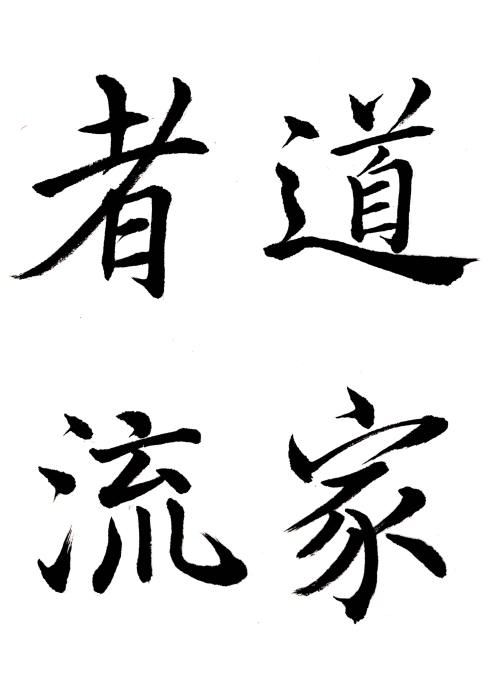 道家
者流